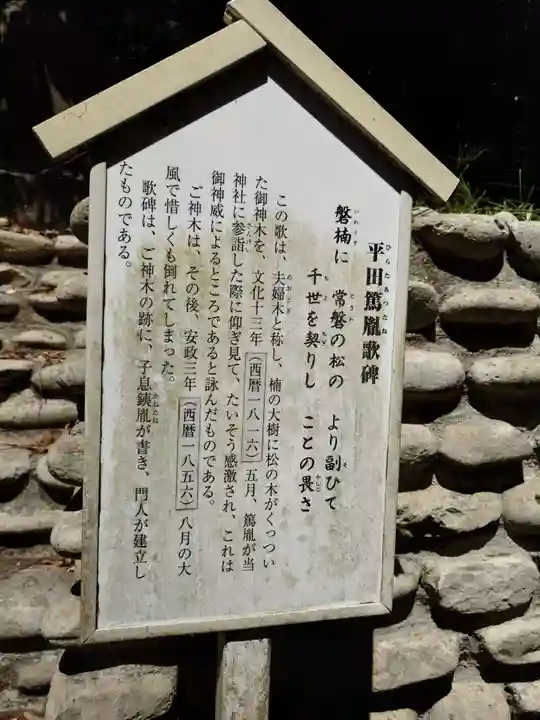 平田篤胤歌碑
磐楠に 常磐の松の より副ひて
千世を契りし ことの畏さ
この歌は、夫婦木と称し、楠の大樹に松の木がくっつい
た御神木を、文化十三年(西暦一八一六)五月、篤胤が当
神社に参詣した際に仰ぎ見て、たいそう感激され、これは
御神威によるところであると詠んだものである。
ご神木は、その後、安政三年(西暦一八五六)八月の大
風で惜しくも倒れてしまった。
歌碑は、ご神木の跡に、子息銕胤が書き、門人が建立し
たものである。